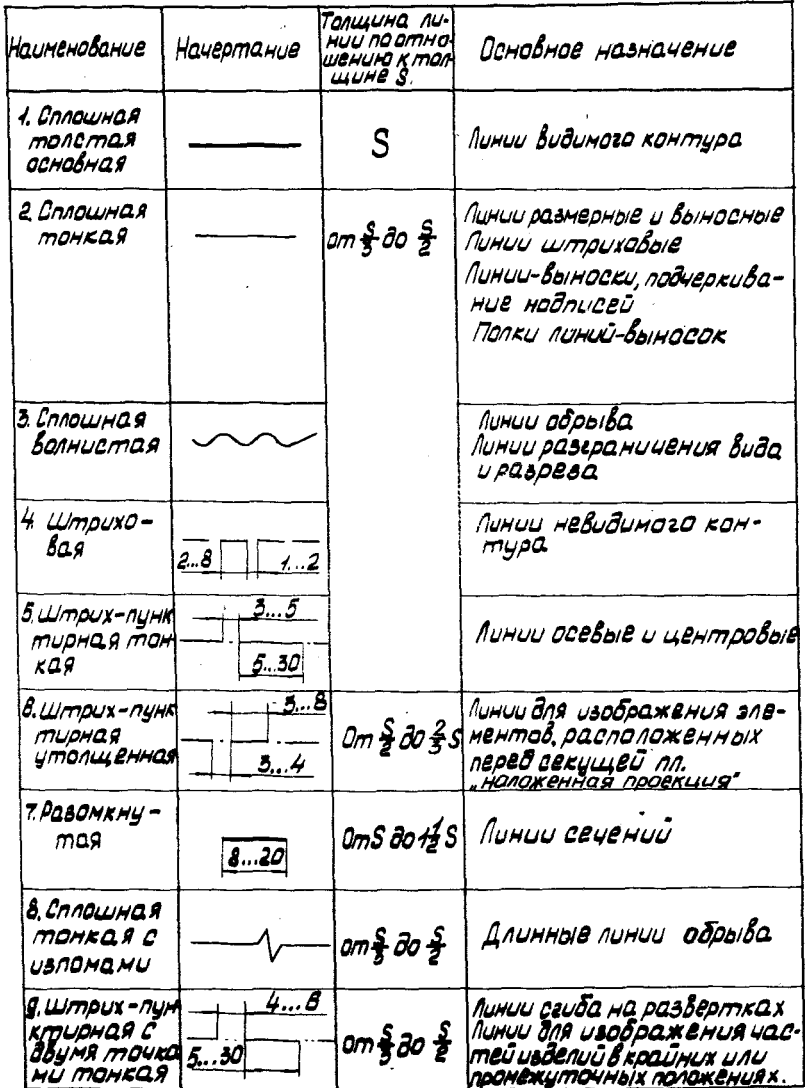 Наименование
Начертание
Толщина ли-
нии по отно-
шению к тол
щине S.
Основное назначение
1. Сплошная
толстая
основная
S
Линии видимого контура
2. Сплошная
тонкая
от S/3 до S/2
Линии размерные и выносные
Линии штриховые
Линии-выноски, подчеркива-
ние надписей
Полки линий-выносок
3. Сплошная
волнистая
Линии обрыва
Линии разграничения вида
и разреза
4. Штрихо-
вая
2...8
1...2
Линии невидимого кон-
тура
5. Штрих-пунк
тирная тон
кая
3...5
5...30
Линии осевые и центровые
6. Штрих-пунк
тирная
утолщенная
3...8
3...4
От S/2 до 2/3 S
Линии для изображения эле-
ментов, расположенных
перед секущей пл.
„наложенная проекция"
7. Разомкну-
тая
8...20
От S до 1 1/2 S
Линии сечений
8. Сплошная
тонкая с
изломами
от S/3 до S/2
Длинные линии обрыва
9. Штрих-пун
ктирная с
двумя точка
ми тонкая
4...8
5...30
от S/3 до S/2
Линии сгиба на развертках
Линии для изображения час-
тей изделий в крайних или
промежуточных положениях.